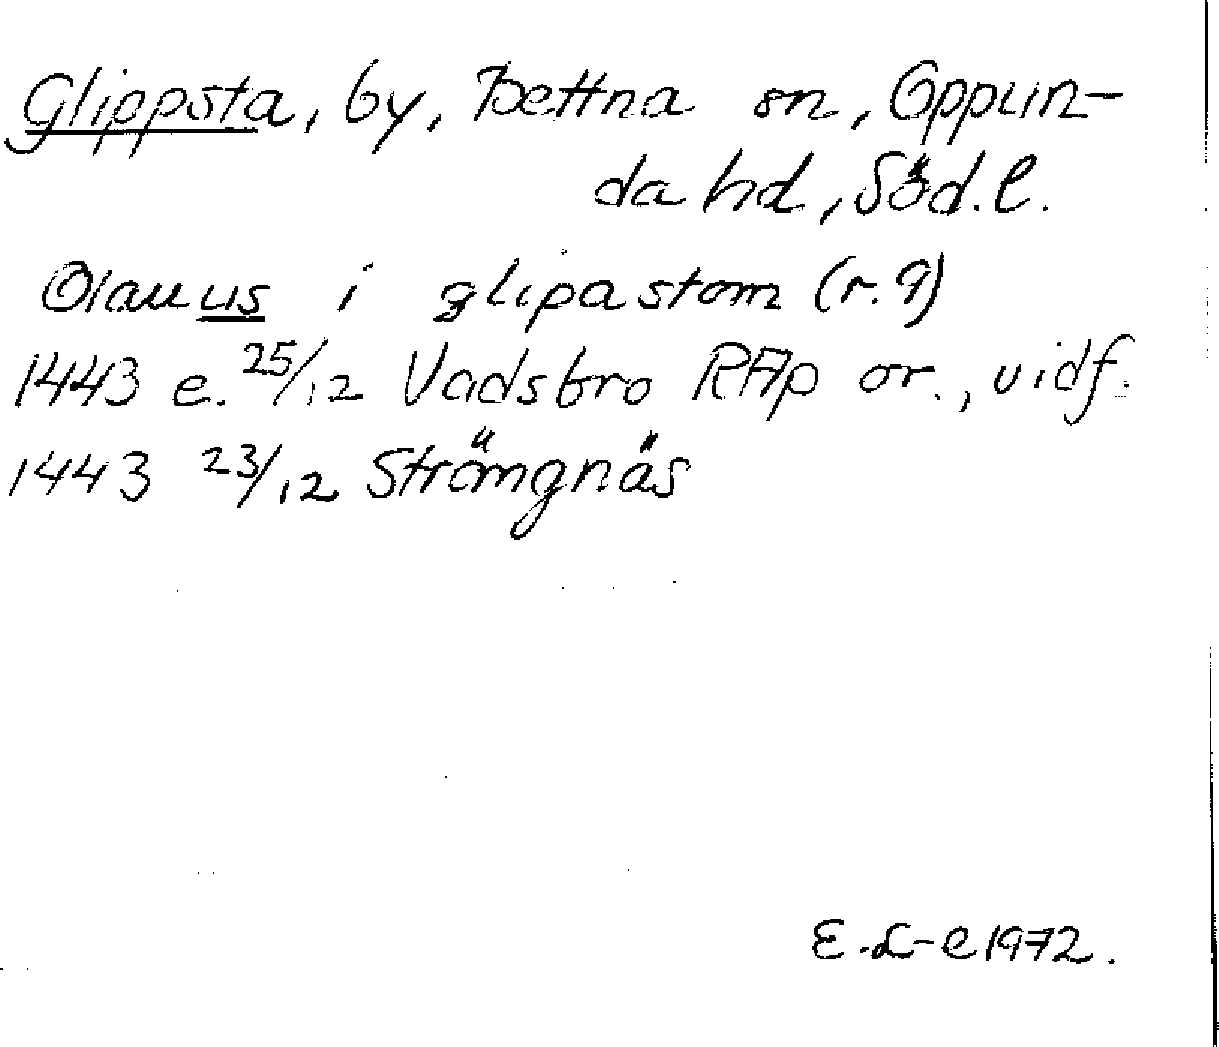 Glippsta, by, Bettna sn, Oppun-
da hd, Söd. l.
Olauus i glipastom (r. 9)
1443 e. 25/12 Vadsbro RAp or., vidf.
1443 23/12 Strängnäs
E. L-e 1972.